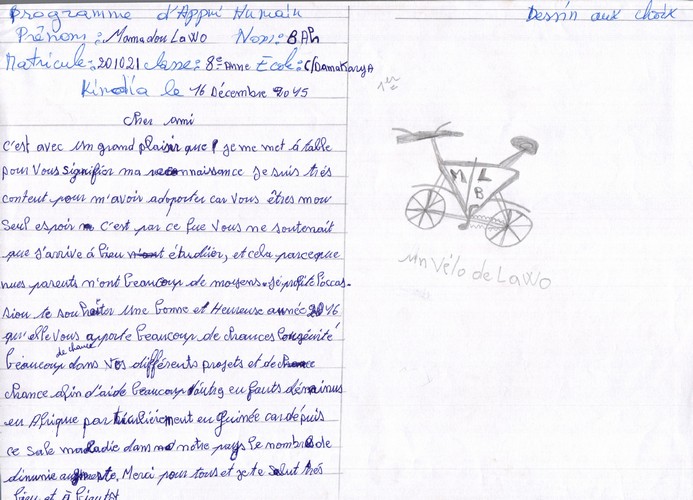 Programme d'Appui Humain
Prénom : Mamadou Lawo Nom : BAh
Matricule : 201021 classe : 8e Anne École : C/Damakanya
Kindia le 16 Décembre 2015
cher ami
c'est avec un grand plaisir que je me met à table
pour vous signifier ma reconnaissance Je suis très
content pour m'avoir adopter car vous êtres mon
Seul espoir c'est par ce que vous me soutenait
que j'arrive à bien étudier, et cela parceque
nues parents n'ont beaucoup de moyens. Je profite l'occas-
sion te souhaiter une bonne et Heureuse année 2016
qu'elle vous apporte beaucoup de chances longévité
beaucoup de chance dans vos différents projets et de
chance afin d'aide beaucoup d'autre enfants démunus
en Afrique particulièrement en Guinée car depuis
ce sale maladie dans notre pays le nombre de
dimunie augmente, Merci pour tous et je te salut très
bien et à bientôt
Dessin aux choix
1er
M L
B
un vélo de LaWo